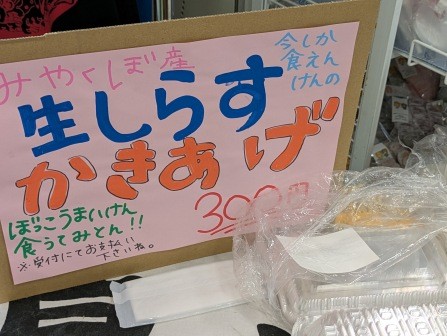 みやくぼ産
今しか
食えん
けんの
生しらす
かきあげ
300円
ぼっこうまいけん
食うてみとん!!
※受付にてお支払い
下さいね。